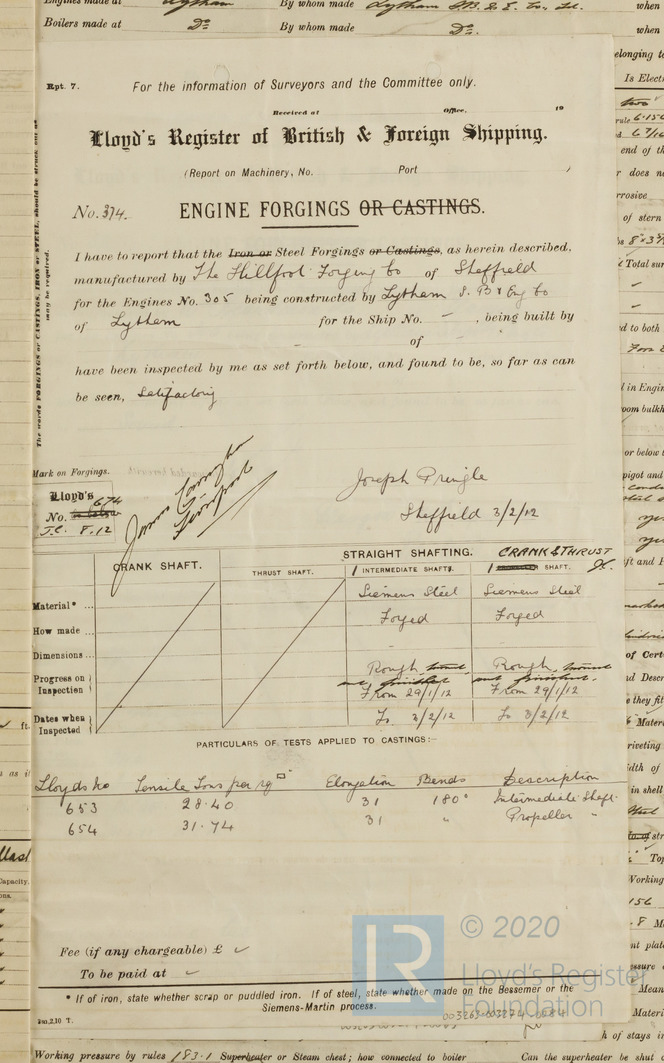 Engines made at Lytham By whom made Lytham S.B. & E. Co. Ld. when
Boilers made at Do. By whom made Do. when
Rpt. 7. For the information of Surveyors and the Committee only.
Received at Office, 19
Lloyd's Register of British & Foreign Shipping.
(Report on Machinery, No. Port )
No. 374. ENGINE FORGINGS OR CASTINGS.
I have to report that the Iron or Steel Forgings or Castings, as herein described,
manufactured by The Hillfoot Forging Co of Sheffield
for the Engines No. 305 being constructed by Lytham S. B & Eng Co
of Lytham for the Ship No. - , being built by
- of -
have been inspected by me as set forth below, and found to be, so far as can
be seen, satisfactory
The words FORGINGS or CASTINGS, IRON or STEEL, should be struck out as
may be required.
Mark on Forgings.
Lloyd's
No. 674
J.C. 8.12
Joseph Pringle
Sheffield 3/2/12
STRAIGHT SHAFTING. CRANK & THRUST
CRANK SHAFT. THRUST SHAFT. 1 INTERMEDIATE SHAFT. 1 SHAFT.
Material* ... Siemens Steel Siemens Steel
How made ... Forged Forged
Dimensions ... - -
Progress on Inspection Rough Rough
not finished. not finished.
Dates when Inspected From 29/1/12 From 29/1/12
To 3/2/12 To 3/2/12
PARTICULARS OF TESTS APPLIED TO CASTINGS:—
Lloyds No Tensile Tons per sq □" Elongation Bends Description
653 28.40 31 180° Intermediate Shaft
654 31.74 31 " Propeller "
Fee (if any chargeable) £
To be paid at
* If of iron, state whether scrap or puddled iron. If of steel, state whether made on the Bessemer or the
Siemens-Martin process.
© 2020
LR
Lloyd's Register
Foundation
003263-003274-0084
Working pressure by rules 183.1 Superheater or Steam chest; how connected to boiler Can the superheater be shut
h of stays in